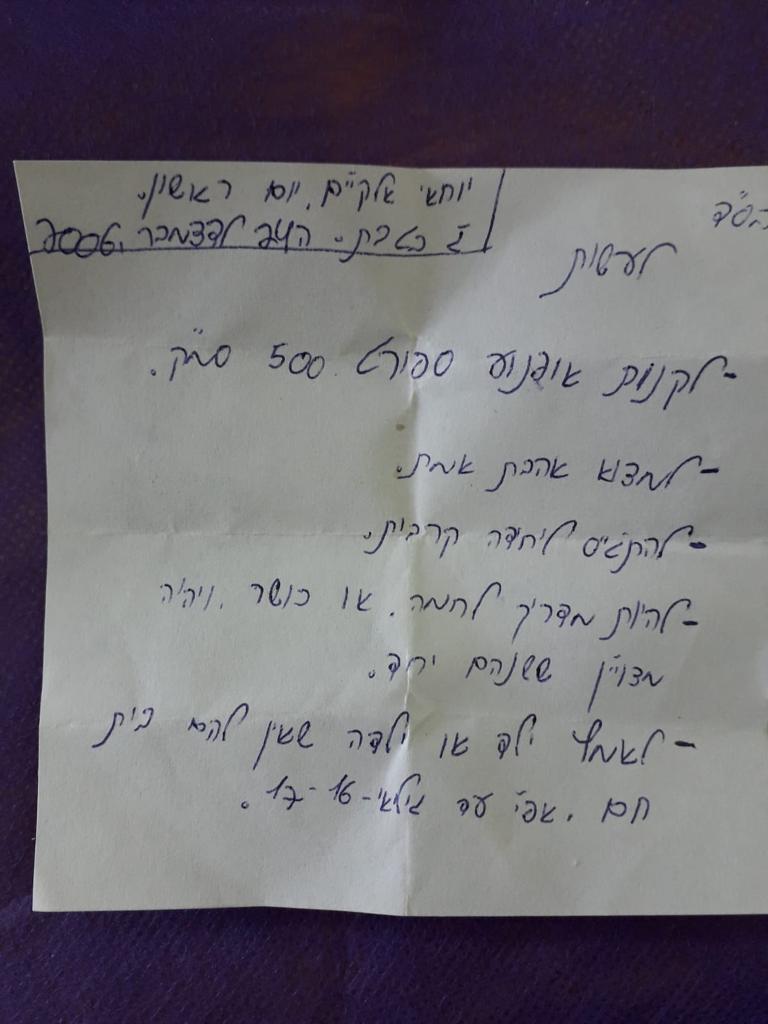 בס"ד
יוחאי אלקיים, יום ראשון.
ג' בטבת. ה24 לדצמבר, 2006
לעשות
-לקנות אופנוע ספורט 500 סמ"ק.
-למצוא אהבת אמת.
-להתגייס ליחידה קרבית.
-להיות מדריך לחמה, או כושר, ויהיה
מצויין ששנהם יחד.
-לאמץ ילד או ילדה שאין להם בית
חם, אפי' עד גילאי-16-17.